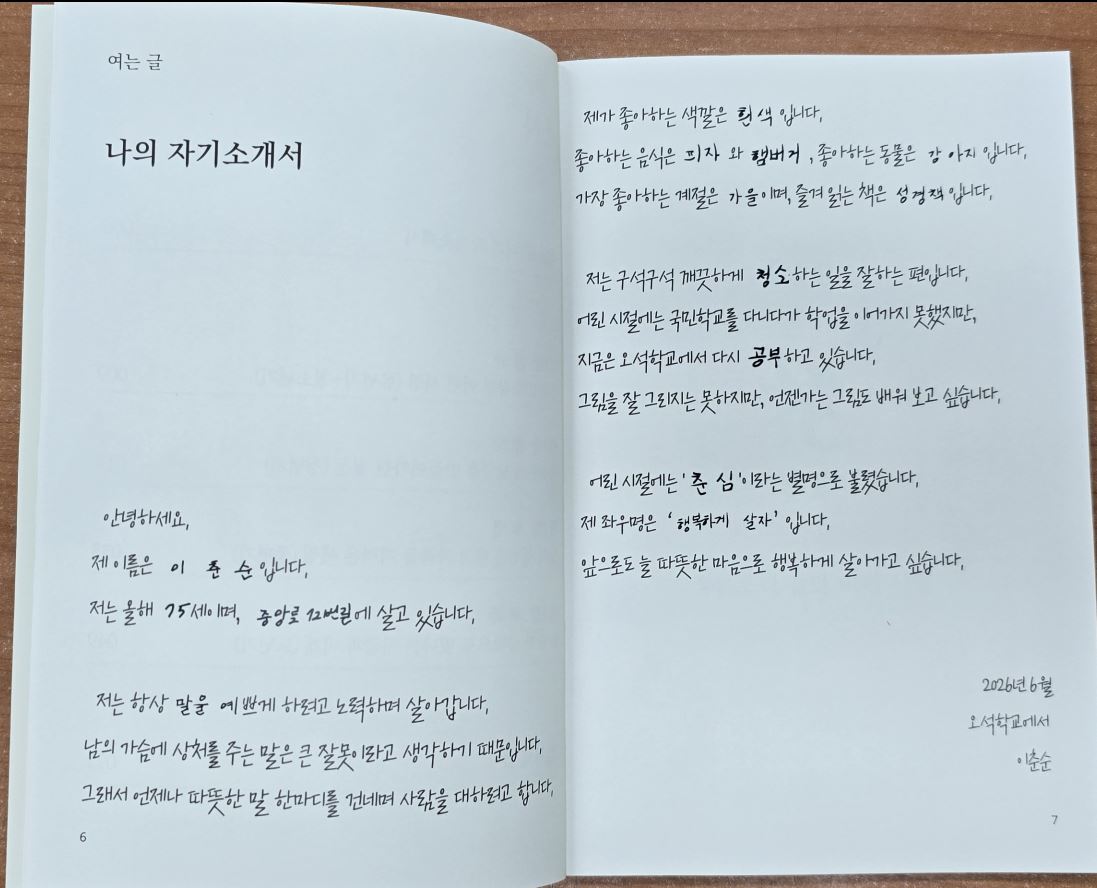 여는 글
나의 자기소개서
안녕하세요,
제 이름은 이 춘 순 입니다.
저는 올해 75세이며, 중앙로 12번길에 살고 있습니다.
저는 항상 말을 예쁘게 하려고 노력하며 살아갑니다.
남의 가슴에 상처를 주는 말은 큰 잘못이라고 생각하기 때문입니다.
그래서 언제나 따뜻한 말 한마디를 건네며 사람을 대하려고 합니다.
6
제가 좋아하는 색깔은 흰색 입니다.
좋아하는 음식은 피자 와 햄버거, 좋아하는 동물은 강아지 입니다.
가장 좋아하는 계절은 가을이며, 즐겨 읽는 책은 성경책입니다.
저는 구석구석 깨끗하게 청소하는 일을 잘하는 편입니다.
어린 시절에는 국민학교를 다니다가 학업을 이어가지 못했지만,
지금은 오석학교에서 다시 공부하고 있습니다.
그림을 잘 그리지는 못하지만, 언젠가는 그림도 배워 보고 싶습니다.
어린 시절에는 '춘심'이라는 별명으로 불렸습니다.
제 좌우명은 '행복하게 살자' 입니다.
앞으로도 늘 따뜻한 마음으로 행복하게 살아가고 싶습니다.
2026년 6월
오석학교에서
이춘순
7